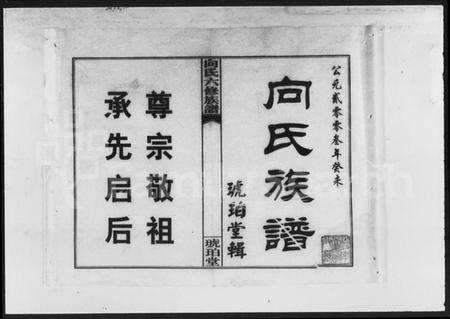 公元贰零零叁年癸未
向氏族譜
琥珀堂輯
向氏六修族譜
琥珀堂
尊宗敬祖
承先启后